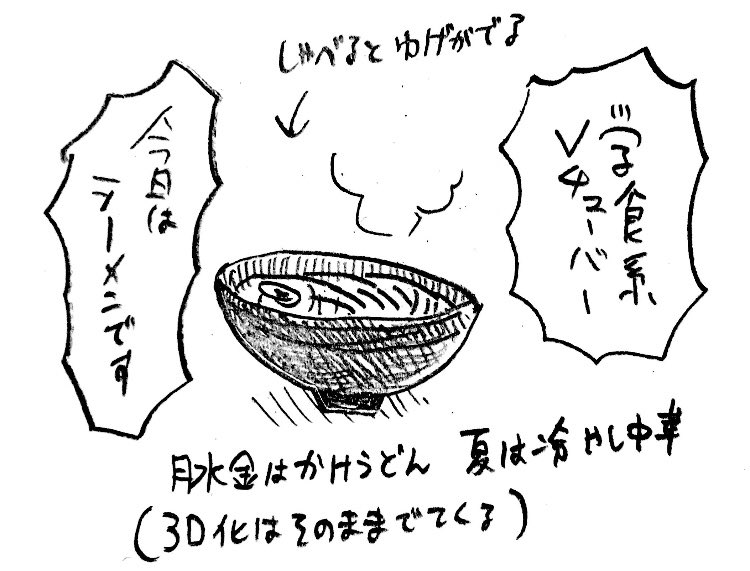 じゃべるとゆげがでる
学食系
Vチューバー
今日は
ラーメンです
月水金はかけうどん 夏は冷やし中華
(3D化はそのままでてくる)